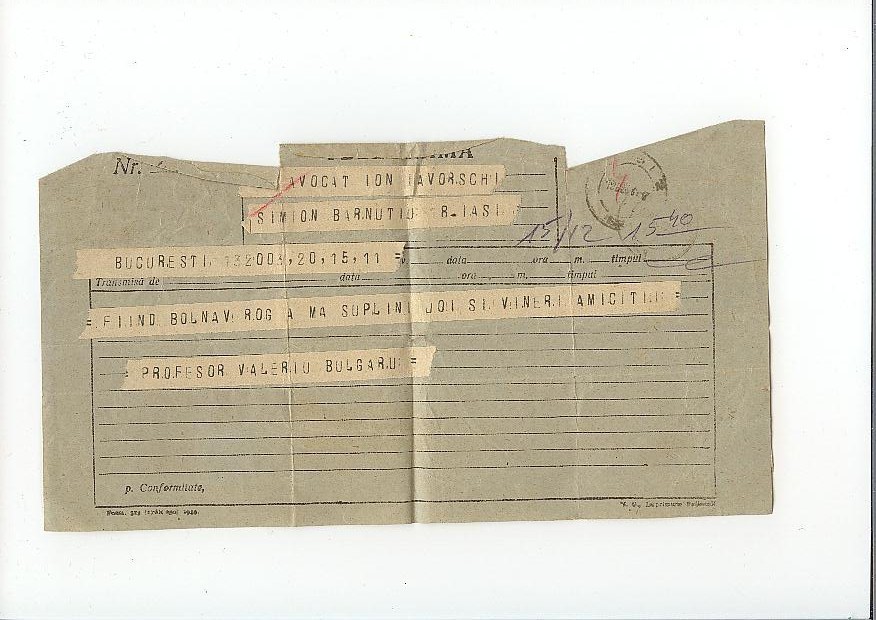 Nr.
AVOCAT ION TAVORSCHI
SIMION BARNUTIU R-IASI
15/12 15 40
BUCURESTI 132003,20,15,11 =
data ora m. timpul
Transmisă de data ora m. timpul
= FIIND BOLNAV ROG A MA SUPLINI JOI SI VINERI AMICITII =
= PROFESOR VALERIU BULGARU =
p. Conformitate,